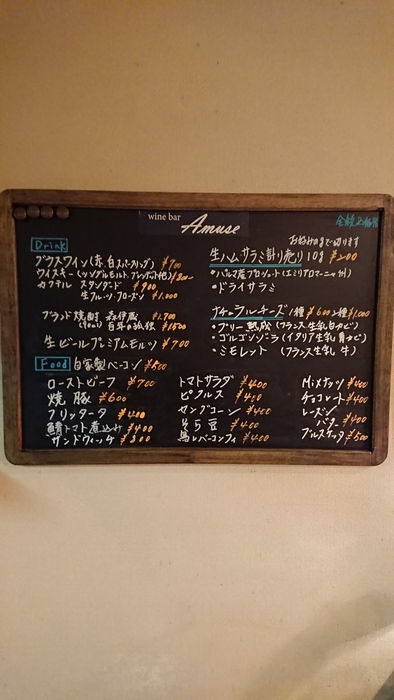 wine bar
Amuse
全税込価格
Drink
グラスワイン(赤、白スパークリング) ¥700
ウイスキー(シングルモルト、ブレンデット他)
カクテル スタンダード ¥900
生フルーツ・フローズン ¥1,000
ブランド焼酎 森伊蔵 ¥1,700
百年の孤独 ¥1500
生ビールプレミアムモルツ ¥700
お好みのgまで切ります
生ハム・サラミ計り売り 10g ¥200
・パルマ産プロシュット(エミリアロマーニャ州)
・ドライサラミ
ナチュラルチーズ 1種 ¥600 2種 ¥1,000
・ブリー熟成(フランス生乳白カビ)
・ゴルゴンゾラ(イタリア生乳青カビ)
・ミモレット(フランス生乳 牛)
Food 自家製ベーコン ¥500
ローストビーフ ¥700
焼豚 ¥600
フリッタータ ¥400
鯖トマト煮込み ¥400
サンドウィッチ ¥800
トマトサラダ ¥400
ピクルス ¥400
ヤングコーン ¥400
そら豆 ¥400
Mixナッツ ¥400
チョコレート ¥400
レーズンバター ¥400
ブルスケッタ ¥500